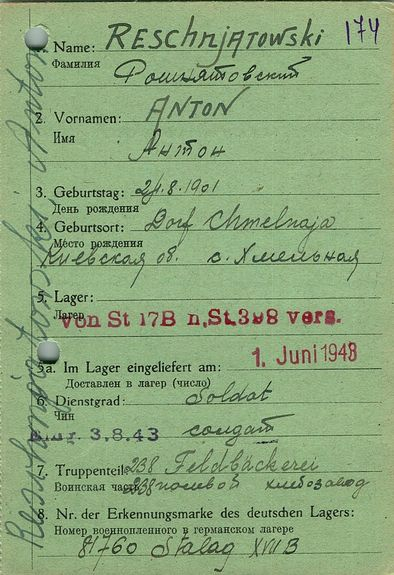 1. Name: RESCHNJATOWSKI 174
Фамилия Рошнятовский
2. Vornamen: ANTON
Имя Антон
3. Geburtstag: 24.8.1901
День рождения
4. Geburtsort: Dorf Chmelnaja
Место рождения
Киевская об. с. Хмельная
5. Lager:
Лагерь
von St 17B n. St. 398 vers.
1. Juni 1943
5a. Im Lager eingeliefert am:
Доставлен в лагерь (число)
6. Dienstgrad: Soldat
Чин
3.8.43 солдат
7. Truppenteil: 238 Feldbäckerei
Воинская часть 238 полевой хлебозавод
8. Nr. der Erkennungsmarke des deutschen Lagers:
Номер военнопленного в германском лагере
81760 Stalag XVII B
Reschnjatowski Anton